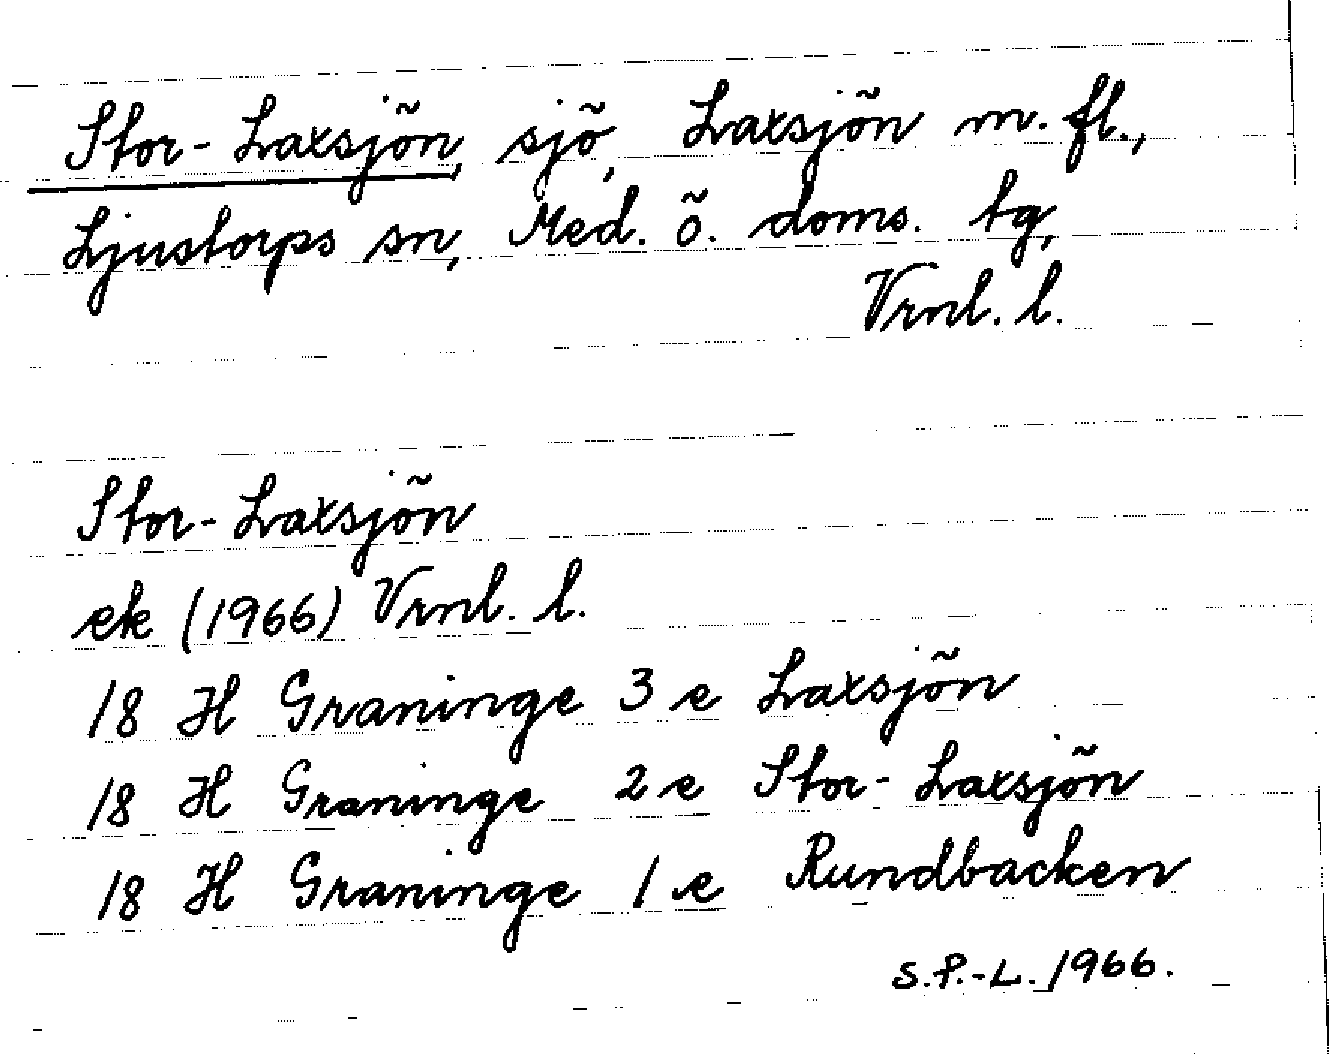 Stor-Laxsjön, sjö, Laxsjön m. fl.,
Ljustorps sn, Med. ö. doms. tg,
Vrnl. l.
Stor-Laxsjön
ek (1966) Vrnl. l.
18 H Graninge 3 e Laxsjön
18 H Graninge 2 e Stor-Laxsjön
18 H Graninge 1 e Rundbacken
S.P.-L. 1966.